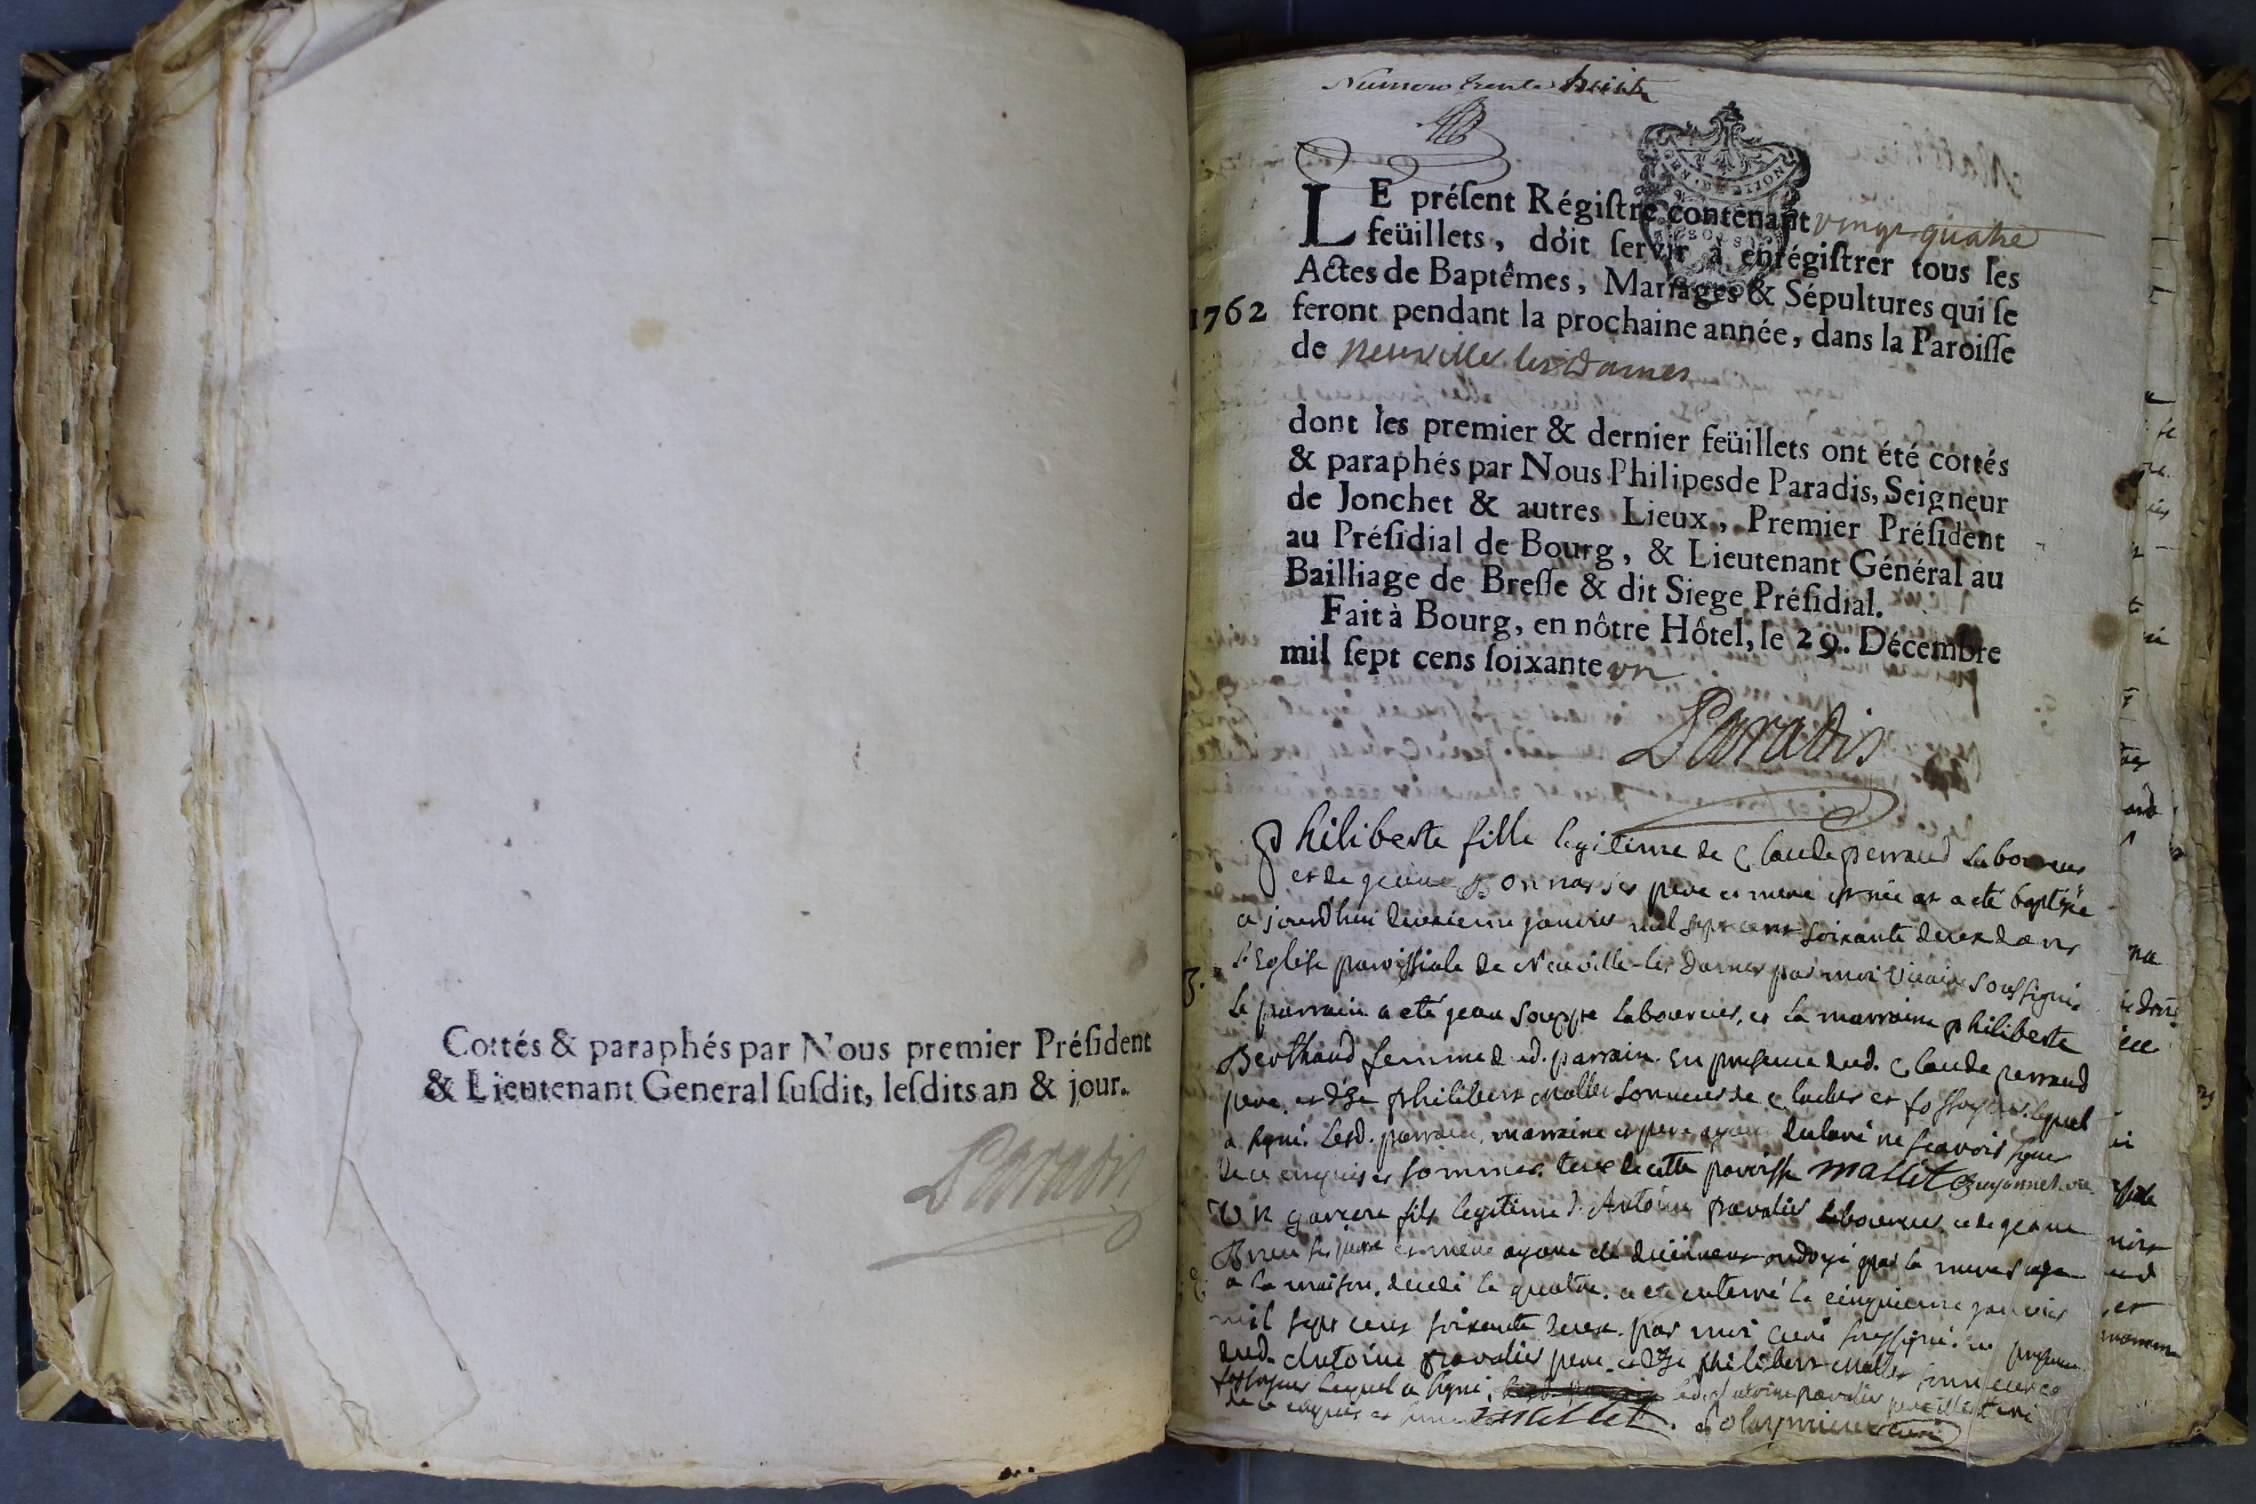 Cottés & paraphés par Nous premier Préſident
& Lieutenant General ſuſdit, leſdits an & jour.
Paradis
Numero trente huit
LE préſent Régiſtre contenant vingt quatre
feüillets, doit ſervir à enrégiſtrer tous les
Actes de Baptêmes, Mariages & Sépultures qui ſe
1762 feront pendant la prochaine année, dans la Paroiſſe
de Neuville les Dames
dont les premier & dernier feüillets ont été cottés
& paraphés par Nous Philipes de Paradis, Seigneur
de Jonchet & autres Lieux, Premier Préſident
au Préſidial de Bourg, & Lieutenant Général au
Bailliage de Breſſe & dit Siege Préſidial.
Fait à Bourg, en nôtre Hôtel, le 29. Décembre
mil ſept cens ſoixante un
Paradis
Philiberte fille legitime de Claude perraud laboureur
et de jeanne Bonnar ses pere et mere est née et a eté baptisée
ce jourd'hui deuxieme janvier mil sept cent soixante deux dans
l'Eglise paroissiale de Neuville-les dames par moi vicaire soussigné
le parrain a eté jean laboureur, et la marraine philiberte
Berthaud femme dud. parrain. En presence dud. Claude perraud
pere, et de philibert Mallet sonneur de cloches et fossoyeur lequel
a signé. Lesd. parrain, marraine et pere ayant declaré ne scavoir signer
de ce enquis et sommés. tous de cette paroisse Mallet
Un garçon fils legitime d'Antoine pravalier laboureur et de jeanne
ses pere et mere ayant eté duement ondoyé par la mere sage
a la maison. decedé le quatre. a eté enterré le cinquieme janvier
mil sept cent soixante deux. par moi curé soussigné. en presence
dud. Antoine pravalier pere, et de philibert Mallet sonneur et
fossoyeur lequel a signé, led. Antoine pravalier
de ce enquis et Mallet. curé